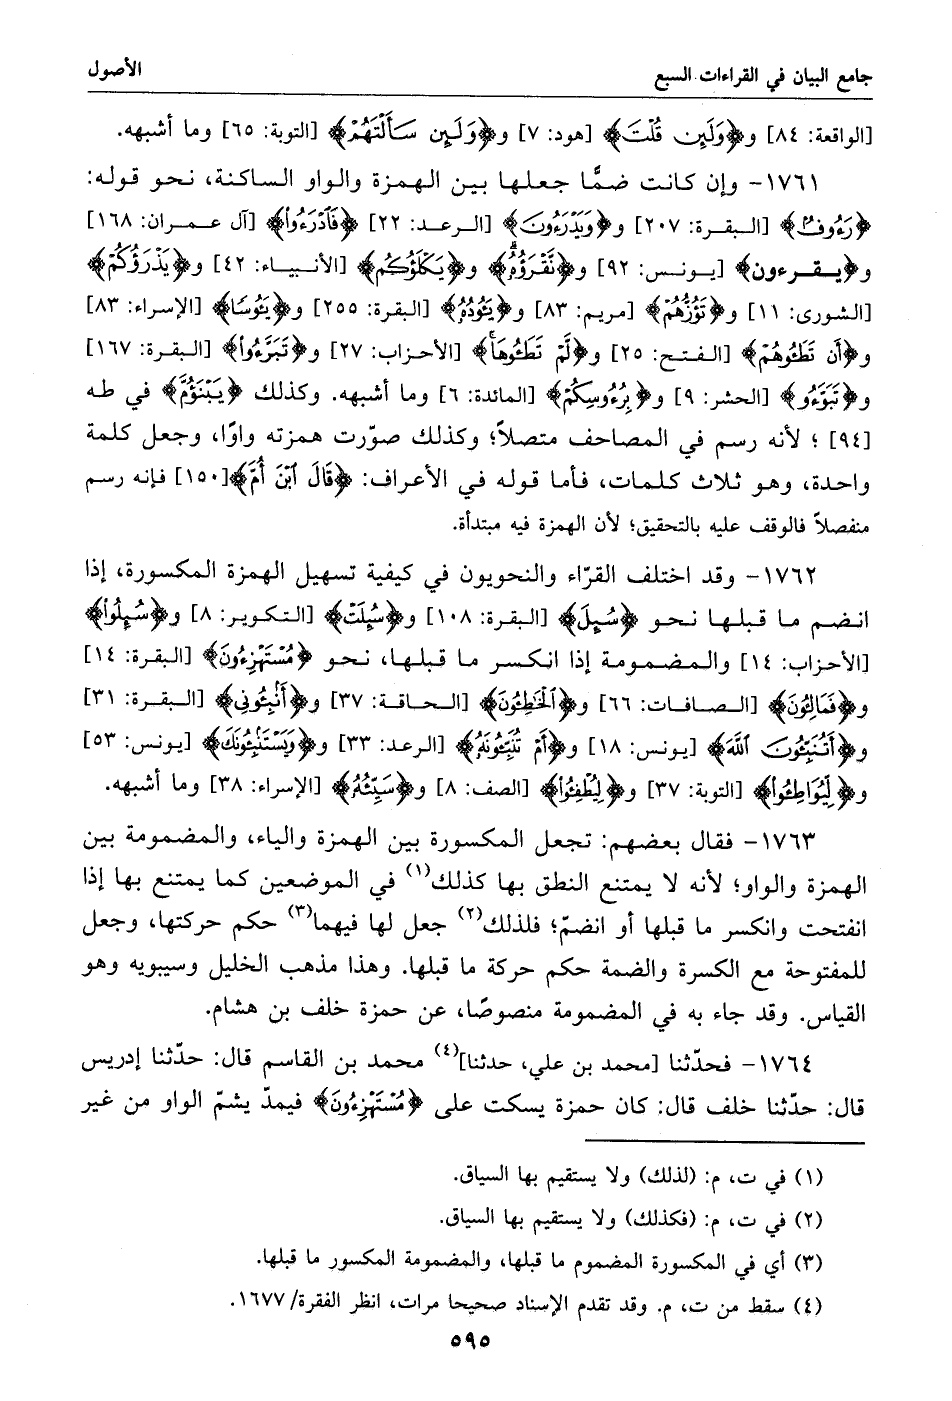 جامع البيان في القراءات السبع
الأصول
[الواقعة: ٨٤] و﴿وَلَئِن قُلْتَ﴾ [هود: ٧] و﴿وَلَئِن سَأَلْتَهُمْ﴾ [التوبة: ٦٥] وما أشبهه.
١٧٦١- وإن كانت ضمًّا جعلها بين الهمزة والواو الساكنة، نحو قوله:
﴿رَءُوفٌ﴾ [البقرة: ٢٠٧] و﴿وَيَدْرَءُونَ﴾ [الرعد: ٢٢] ﴿فَادْرَءُوا﴾ [آل عمران: ١٦٨]
و﴿يقرءون﴾ [يونس: ٩٢] و﴿نَّقْرَؤُهُۥ﴾ و﴿يَكْلَؤُكُم﴾ [الأنبياء: ٤٢] و﴿يَذْرَؤُكُمْ﴾
[الشورى: ١١] و﴿تَؤُزُّهُمْ﴾ [مريم: ٨٣] و﴿يَـُٔودُهُۥ﴾ [البقرة: ٢٥٥] و﴿يَـُٔوسًا﴾ [الإسراء: ٨٣]
و﴿أَن تَطَـُٔوهُمْ﴾ [الفتح: ٢٥] و﴿لَّمْ تَطَـُٔوهَا﴾ [الأحزاب: ٢٧] و﴿تَبَرَّءُوا﴾ [البقرة: ١٦٧]
و﴿تَبَوَّءُو﴾ [الحشر: ٩] و﴿بِرُءُوسِكُمْ﴾ [المائدة: ٦] وما أشبهه. وكذلك ﴿يَبْنَؤُمَّ﴾ في طه
[٩٤] ؛ لأنه رسم في المصاحف متصلاً؛ وكذلك صوّرت همزته واوًا، وجعل كلمة
واحدة، وهو ثلاث كلمات، فأما قوله في الأعراف: ﴿قَالَ ٱبْنَ أُمَّ﴾[١٥٠] فإنه رسم
منفصلاً فالوقف عليه بالتحقيق؛ لأن الهمزة فيه مبتدأة.
١٧٦٢- وقد اختلف القرّاء والنحويون في كيفية تسهيل الهمزة المكسورة، إذا
انضم ما قبلها نحو ﴿سُئِلَ﴾ [البقرة: ١٠٨] و﴿سُئِلَتْ﴾ [التكوير: ٨] و﴿سُئِلُوا﴾
[الأحزاب: ١٤] والمضمومة إذا انكسر ما قبلها، نحو ﴿مُسْتَهْزِءُونَ﴾ [البقرة: ١٤]
و﴿فَمَالِـُٔونَ﴾ [الصافات: ٦٦] و﴿ٱلْخَٰطِـُٔونَ﴾ [الحاقة: ٣٧] و﴿أَنۢبِـُٔونِى﴾ [البقرة: ٣١]
و﴿أَتُنَبِّـُٔونَ ٱللَّهَ﴾ [يونس: ١٨] و﴿أَمْ تُنَبِّـُٔونَهُۥ﴾ [الرعد: ٣٣] و﴿وَيَسْتَنۢبِـُٔونَكَ﴾ [يونس: ٥٣]
و﴿لِّيُوَاطِـُٔوا﴾ [التوبة: ٣٧] و﴿لِيُطْفِـُٔوا﴾ [الصف: ٨] و﴿سَيِّئُهُۥ﴾ [الإسراء: ٣٨] وما أشبهه.
١٧٦٣- فقال بعضهم: تجعل المكسورة بين الهمزة والياء، والمضمومة بين
الهمزة والواو؛ لأنه لا يمتنع النطق بها كذلك(١) في الموضعين كما يمتنع بها إذا
انفتحت وانكسر ما قبلها أو انضمّ؛ فلذلك(٢) جعل لها فيهما(٣) حكم حركتها، وجعل
للمفتوحة مع الكسرة والضمة حكم حركة ما قبلها. وهذا مذهب الخليل وسيبويه وهو
القياس. وقد جاء به في المضمومة منصوصًا، عن حمزة خلف بن هشام.
١٧٦٤- فحدّثنا [محمد بن علي، حدثنا](٤) محمد بن القاسم قال: حدّثنا إدريس
قال: حدّثنا خلف قال: كان حمزة يسكت على ﴿مُسْتَهْزِءُونَ﴾ فيمدّ يشمّ الواو من غير
(١) في ت، م: (لذلك) ولا يستقيم بها السياق.
(٢) في ت، م: (فكذلك) ولا يستقيم بها السياق.
(٣) أي في المكسورة المضموم ما قبلها، والمضمومة المكسور ما قبلها.
(٤) سقط من ت، م. وقد تقدم الإسناد صحيحا مرات، انظر الفقرة/ ١٦٧٧.
٥٩٥